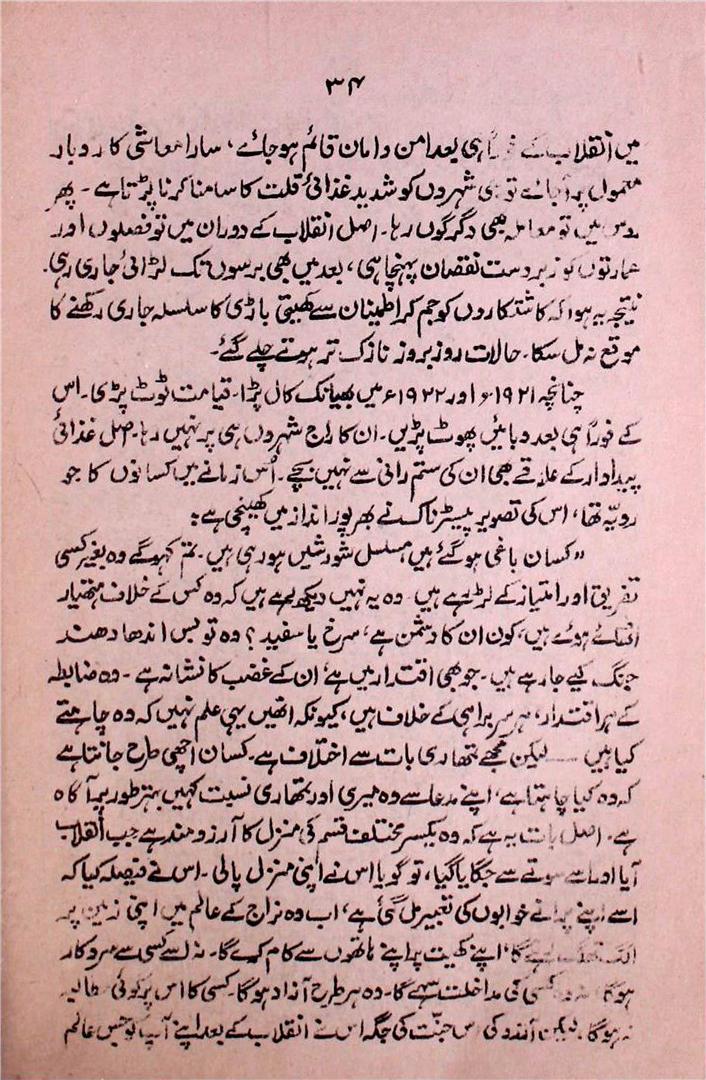 ۳۴
میں انقلاب کے فوراً ہی بعد امن و امان قائم ہو جائے، سارا معاشی کاروبار
معمول پر آجائے تو بھی شہروں کو شدید غذائی قلت کا سامنا کرنا پڑتا ہے۔ پھر
روس میں تو معاملہ بھی دگرگوں رہا۔ اصل انقلاب کے دوران میں تو فصلوں اور
عمارتوں کو زبردست نقصان پہنچا ہی، بعد میں بھی برسوں تک لڑائی جاری رہی۔
نتیجہ یہ ہوا کہ کاشتکاروں کو جم کر اطینان سے کھیتی باڑی کا سلسلہ جاری رکھنے کا
موقع نہ مل سکا۔ حالات روز بروز نازک تر ہوتے چلے گئے۔
چنانچہ ۱۹۲۱ء اور ۱۹۲۲ء میں بھیانک کال پڑا۔ قیامت ٹوٹ پڑی۔ اس
کے فوراً ہی بعد وبائیں پھوٹ پڑیں۔ ان کا راج شہروں ہی پر نہیں رہا۔ اصل غذائی
پیداوار کے علاقے بھی ان کی ستم رانی سے نہیں بچے۔ اُس زمانے میں کسانوں کا جو
رویّہ تھا، اس کی تصویر پیسٹرناک نے بھرپور انداز میں کھینچی ہے:
"کسان باغی ہو گئے ہیں مسلسل شورشیں ہو رہی ہیں۔ تم کہو گے وہ بغیر کسی
تفریق اور امتیاز کے لڑ رہے ہیں۔ وہ یہ نہیں دیکھ رہے ہیں کہ وہ کس کے خلاف ہتھیار
اٹھائے ہوئے ہیں، کون ان کا دشمن ہے، سرخ یا سفید؟ وہ تو بس اندھا دھند
جنگ کیے جا رہے ہیں۔ جو بھی اقتدار میں ہے، ان کے غضب کا نشانہ ہے۔ وہ ضابطہ
کے ہر اقتدار، ہر سربراہی کے خلاف ہیں، کیونکہ انھیں یہی علم نہیں کہ وہ چاہتے
کیا ہیں —— لیکن مجھے تمھاری بات سے اختلاف ہے۔ کسان اچھی طرح جانتا ہے
کہ وہ کیا چاہتا ہے، اپنے مدعا سے وہ میری اور تمھاری نسبت کہیں بہتر طور پر آگاہ
ہے۔ اصل بات یہ ہے کہ وہ یکسر مختلف قسم کی منزل کا آرزومند ہے جب انقلاب
آیا اور اسے سوتے سے جگایا گیا، تو گویا اس نے اپنی منزل پالی۔ اس نے فیصلہ کیا کہ
اسے اپنے پرانے خوابوں کی تعبیر مل گئی ہے، اب وہ نراج کے عالم میں اپنی زمین پر
الگ تھلگ رہے گا، اپنے کھیت پر اپنے ہاتھوں سے کام کرے گا۔ نہ اسے کسی سے سروکار
ہوگا کسی کی مداخلت سہے گا۔ وہ ہر طرح آزاد ہوگا۔ کسی کا اس پر کوئی مطالبہ
نہ ہوگا۔ لیکن آرزو کی اس جنّت کی جگہ اس نے انقلاب کے بعد اپنے آپ کو جس عالم